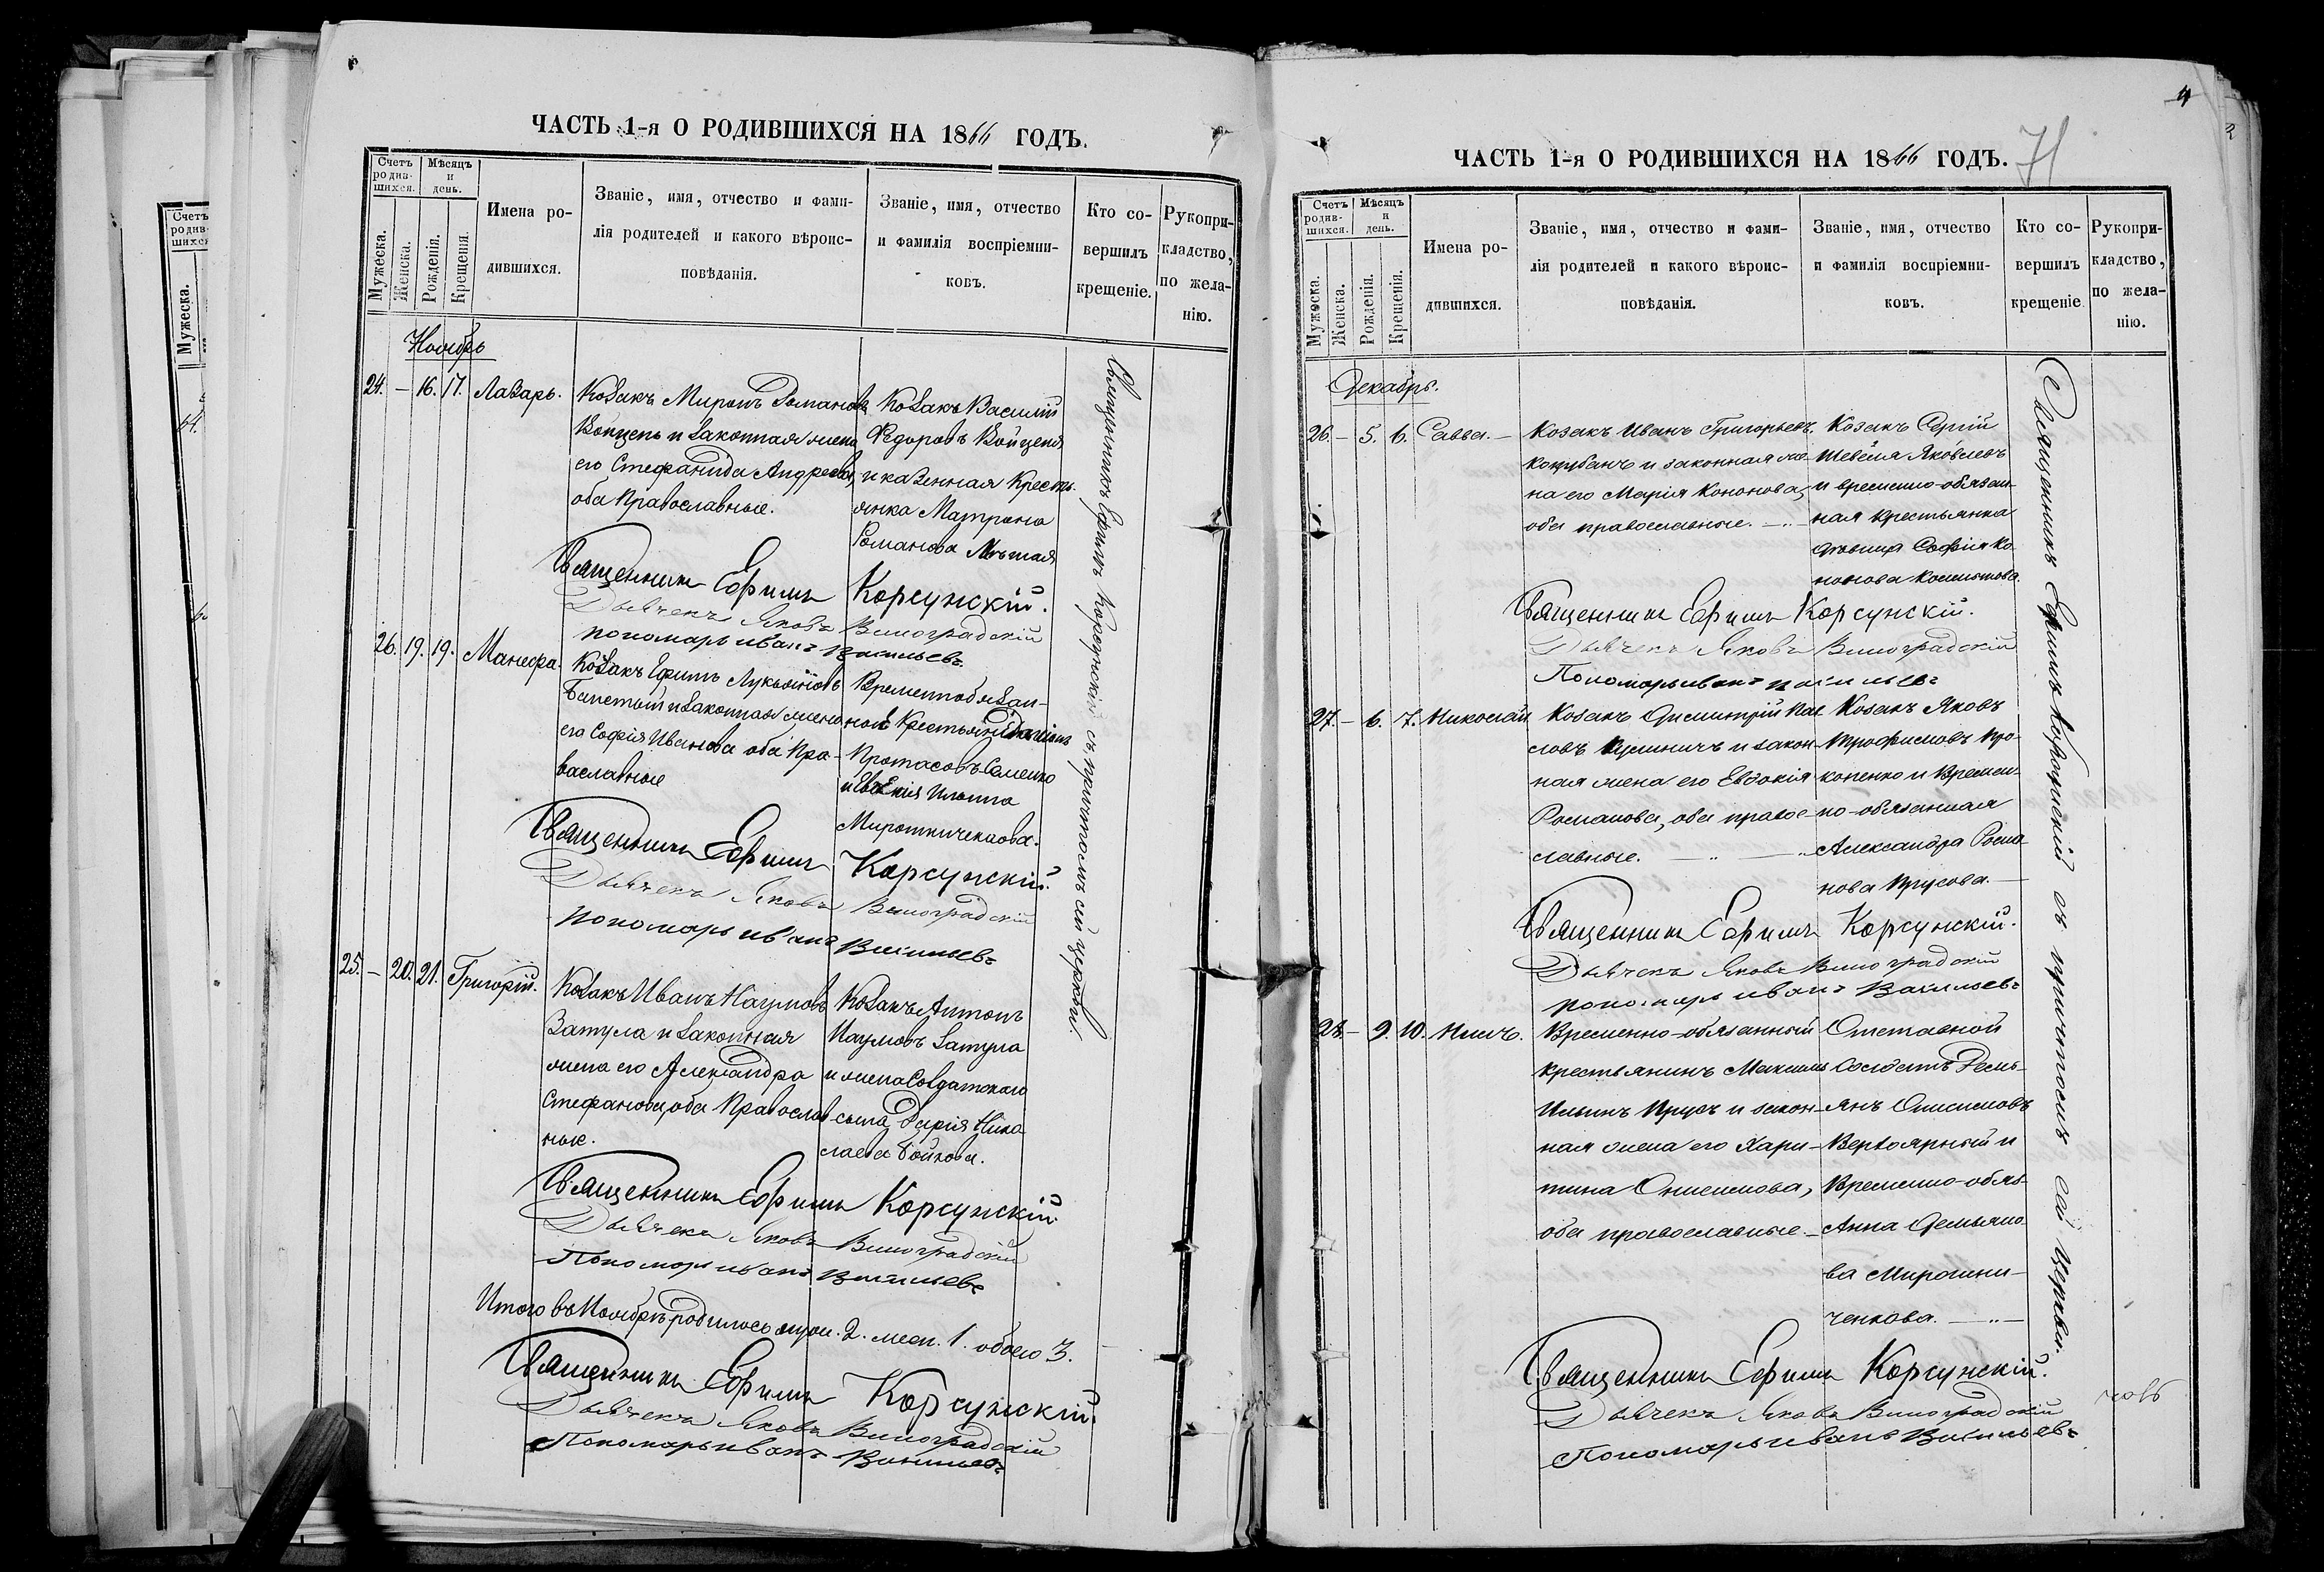 ЧАСТЬ 1-я О РОДИВШИХСЯ НА 1866 ГОДЪ.
Счетъ родившихся.
Мѣсяцъ и день.
Мужеска.
Женска.
Рожденія.
Крещенія.
Имена родившихся.
Званіе, имя, отчество и фами-
лія родителей и какого вѣроис-
повѣданія.
Званіе, имя, отчество
и фамилія воспріемни-
ковъ.
Кто со-
вершилъ
крещеніе.
Рукопри-
кладство,
по жела-
нію.
Ноябрь
24. — 16. 17. Лазарь.
Козакъ Миронъ Романовъ
Войцень и законная жена
его Стефанида Андреева,
оба Православные.
Козакъ Василій
Федоровъ Войценя
и казенная Кресть-
янка Матрона
Романова
Священникъ Ефимъ Корсунскій.
Дьячекъ Яковъ Виноградскій
пономарь иванъ Васильевъ
26. 19. 19. Манефа.
Козакъ Ефимъ Лукьяновъ
и законная жена
его Софія Иванова оба Пра-
вославные
Временнообязан-
ной Крестьянинъ
Протасовъ Семенко
и Евгенія Ильина
Мирошниченкова.
Священникъ Ефимъ Корсунскій.
Дьячекъ Яковъ Виноградскій
пономарь иванъ Васильевъ
25. — 20. 21. Григорій.
Козакъ Иванъ Наумовъ
Затула и законная
жена его Александра
Стефанова, оба Православ-
ные.
Козакъ Антонъ
Наумовъ Затула
и жена Солдатскаго
сына Дарія Нико-
лаева Бойкова.
Священникъ Ефимъ Корсунскій
Дьячекъ Яковъ Виноградскій
Пономарь иванъ Васильевъ
Итого въ Ноябрѣ родилось муж. 2. жен. 1. обоего 3.
Священникъ Ефимъ Корсунскій.
Дьячекъ Яковъ Виноградскій
Пономарь иванъ Васильевъ
Священникъ Ефимъ Корсунскій съ причтомъ сей церкви.
4
71
ЧАСТЬ 1-я О РОДИВШИХСЯ НА 1866 ГОДЪ.
Счетъ родившихся.
Мѣсяцъ и день.
Мужеска.
Женска.
Рожденія.
Крещенія.
Имена родившихся.
Званіе, имя, отчество и фами-
лія родителей и какого вѣроис-
повѣданія.
Званіе, имя, отчество
и фамилія воспріемни-
ковъ.
Кто со-
вершилъ
крещеніе
Рукопри-
кладство,
по жела-
нію.
Декабрь.
26. — 5. 6. Савва. —
Козакъ Иванъ Григорьевъ
Коцубанъ и законная же-
на его Марія Кононова,
оба православные. —
Козакъ Сергій
Шевеля Яковлевъ
и временно-обязан-
ная крестьянка
Софія Ко-
нонова
Священникъ Ефимъ Корсунскій.
Дьячекъ Яковъ Виноградскій
Пономарь иванъ Васильевъ
27. — 6. 7. Николай
Козакъ Димитрій Пав-
ловъ Кулиничъ и закон-
ная жена его Евдокія
Романова, оба правос-
лавные. —
Козакъ Яковъ
Трофимовъ Про-
копенко и Времен-
но-обязанная
Александра Рома-
нова Прусова. —
Священникъ Ефимъ Корсунскій.
Дьячекъ Яковъ Виноградскій
пономарь иванъ Васильевъ
28. — 9. 10. Никъ.
Временно-обязанный
крестьянинъ Максимъ
Ильинъ Прусъ и закон-
ная жена его Хари-
тина Онисимова,
оба православные. —
Отставной
Солдатъ Демь-
янъ Онисимовъ
Верхоярный и
Временно-обяз-
Анна Демьяно-
ва Мирошни-
ченкова. —
Священникъ Ефимъ Корсунскій.
Дьячекъ Яковъ Виноградскій
Пономарь иванъ Васильевъ
Священникъ Ефимъ Корсунскій съ причтомъ сей церкви.